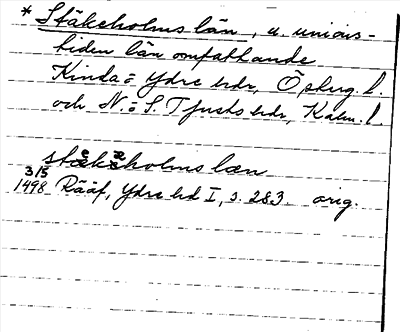 * Stäkeholms län, u. unions-
tiden län omfattande
Kinda= Ydre hdr, Östg. l.
och N.= S. Tjusts hdr, Kalm. l.
stækæholms læn
3/5
1498 Rääf, Ydre hd I, s. 283. orig.